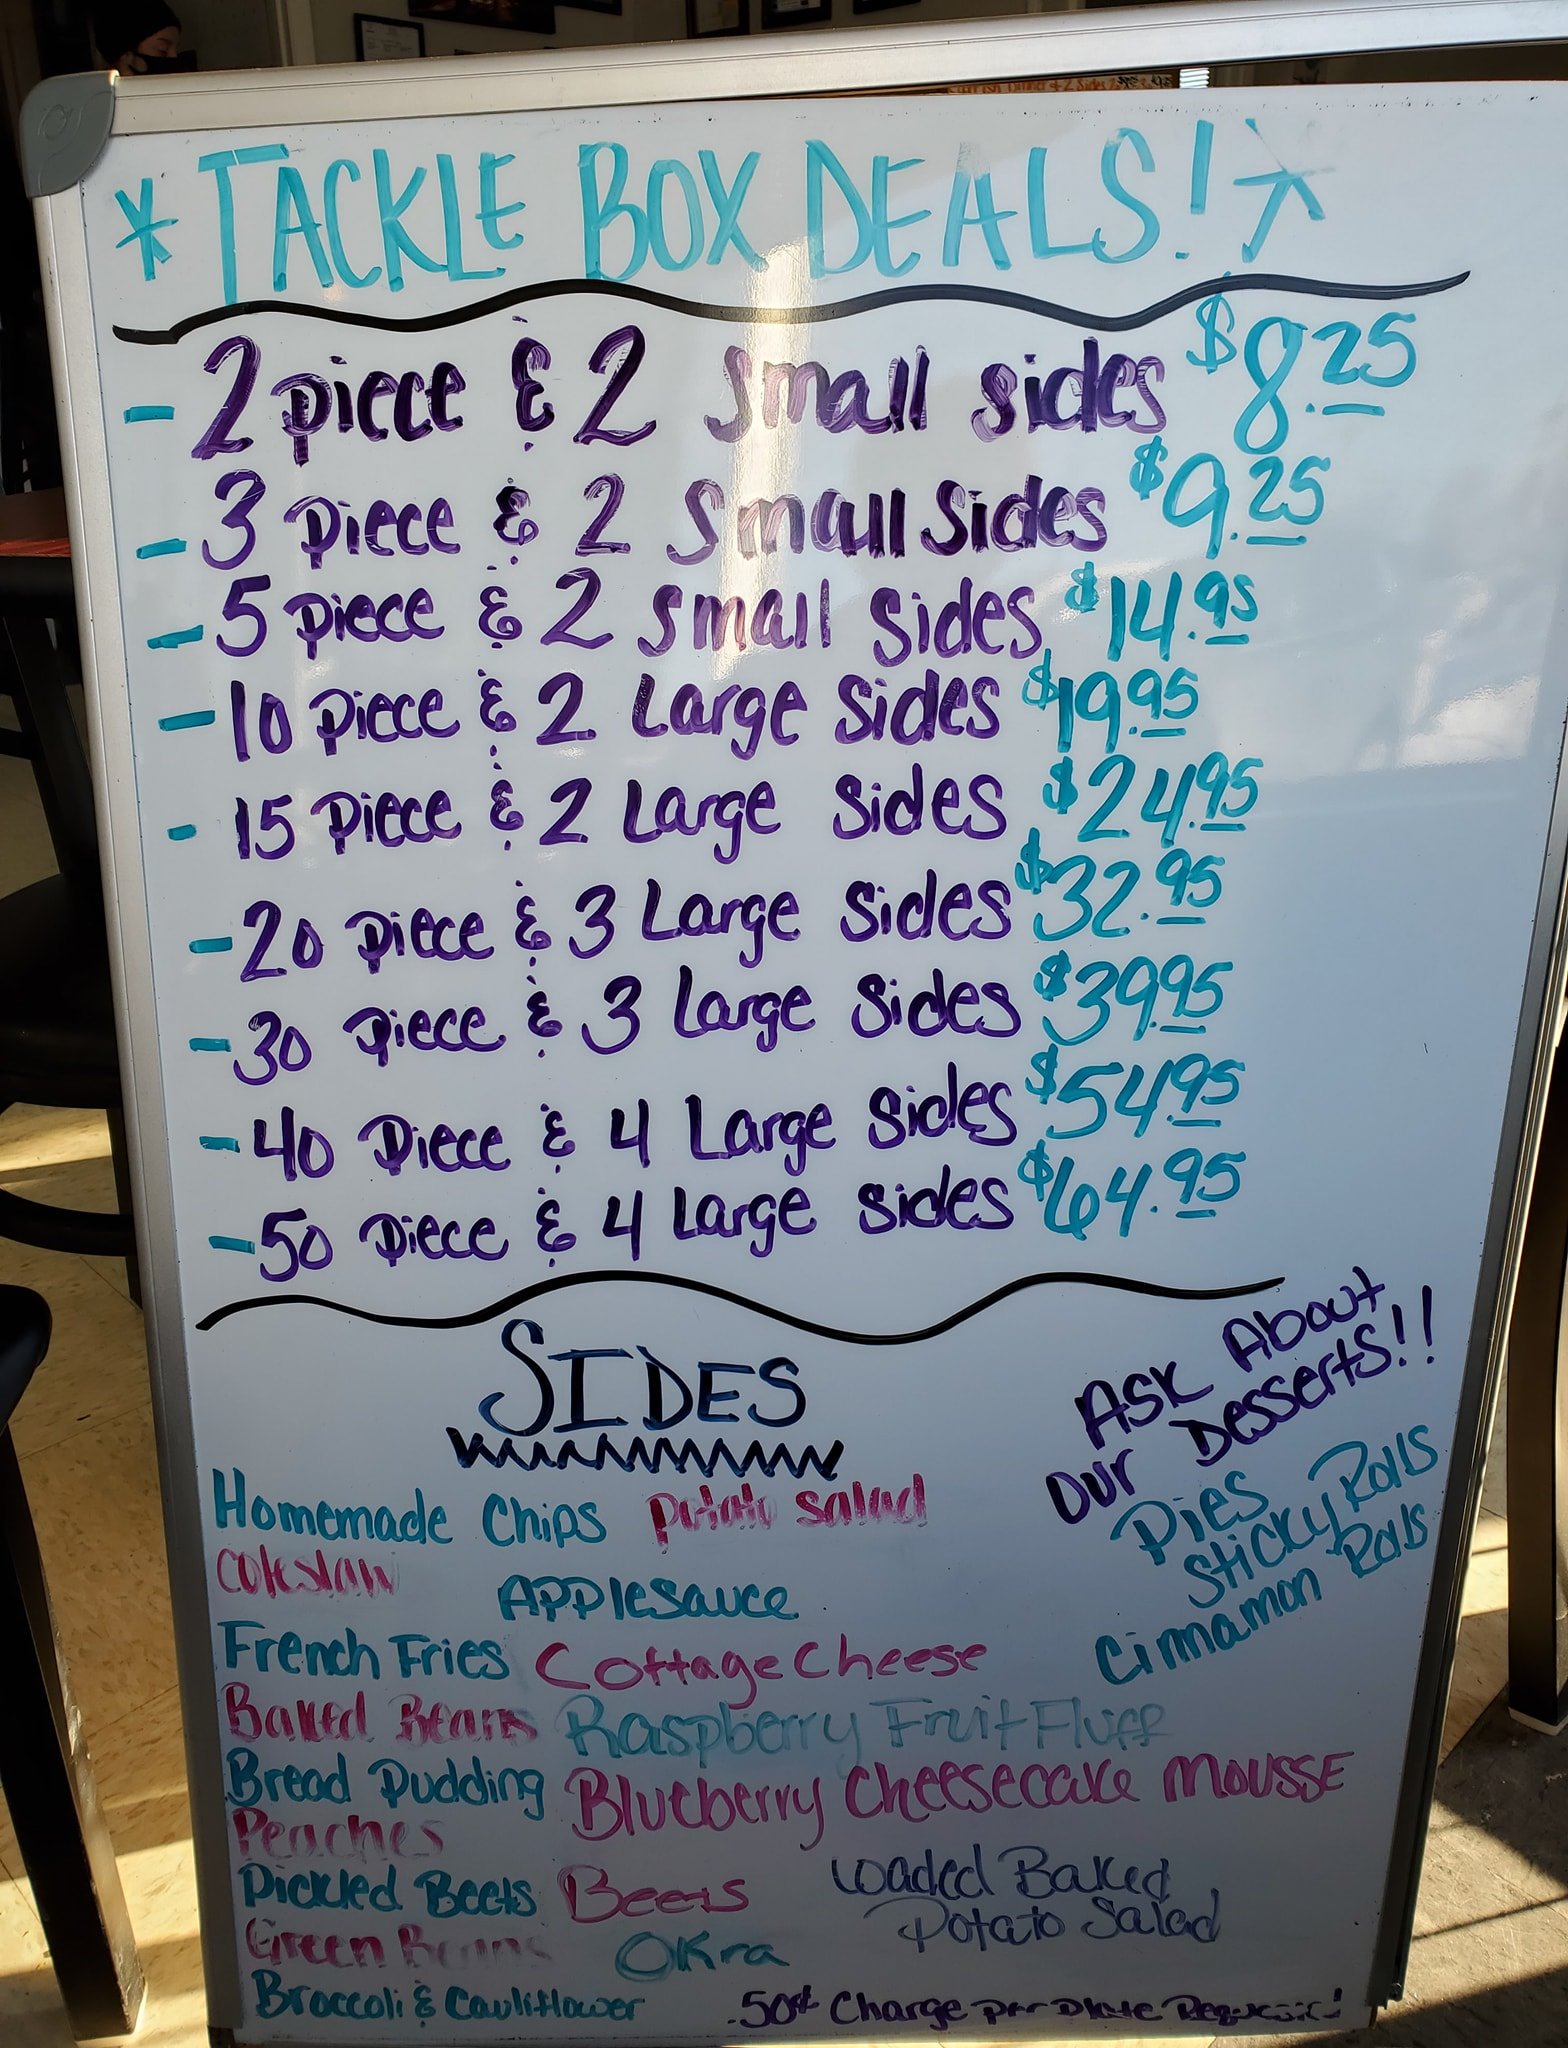 * TACKLE BOX DEALS! *
- 2 piece & 2 small sides $8.25
- 3 piece & 2 small sides $9.25
- 5 piece & 2 small sides $14.95
- 10 piece & 2 Large sides $19.95
- 15 piece & 2 Large sides $24.95
- 20 piece & 3 Large sides $32.95
- 30 piece & 3 Large sides $39.95
- 40 piece & 4 Large sides $54.95
- 50 piece & 4 Large sides $64.95
SIDES
Homemade Chips potato salad
coleslaw APPlesauce
French Fries Cottage Cheese
Baked Beans Raspberry Fruit Fluff
Bread Pudding Blueberry Cheesecake Mousse
Peaches
Pickled Beets Beets
Green Beans Okra
Broccoli & Cauliflower
Loaded Baked
Potato Salad
Ask About
Our Desserts!!
Pies
Sticky Rolls
Cinnamon Rolls
.50¢ Charge per Plate